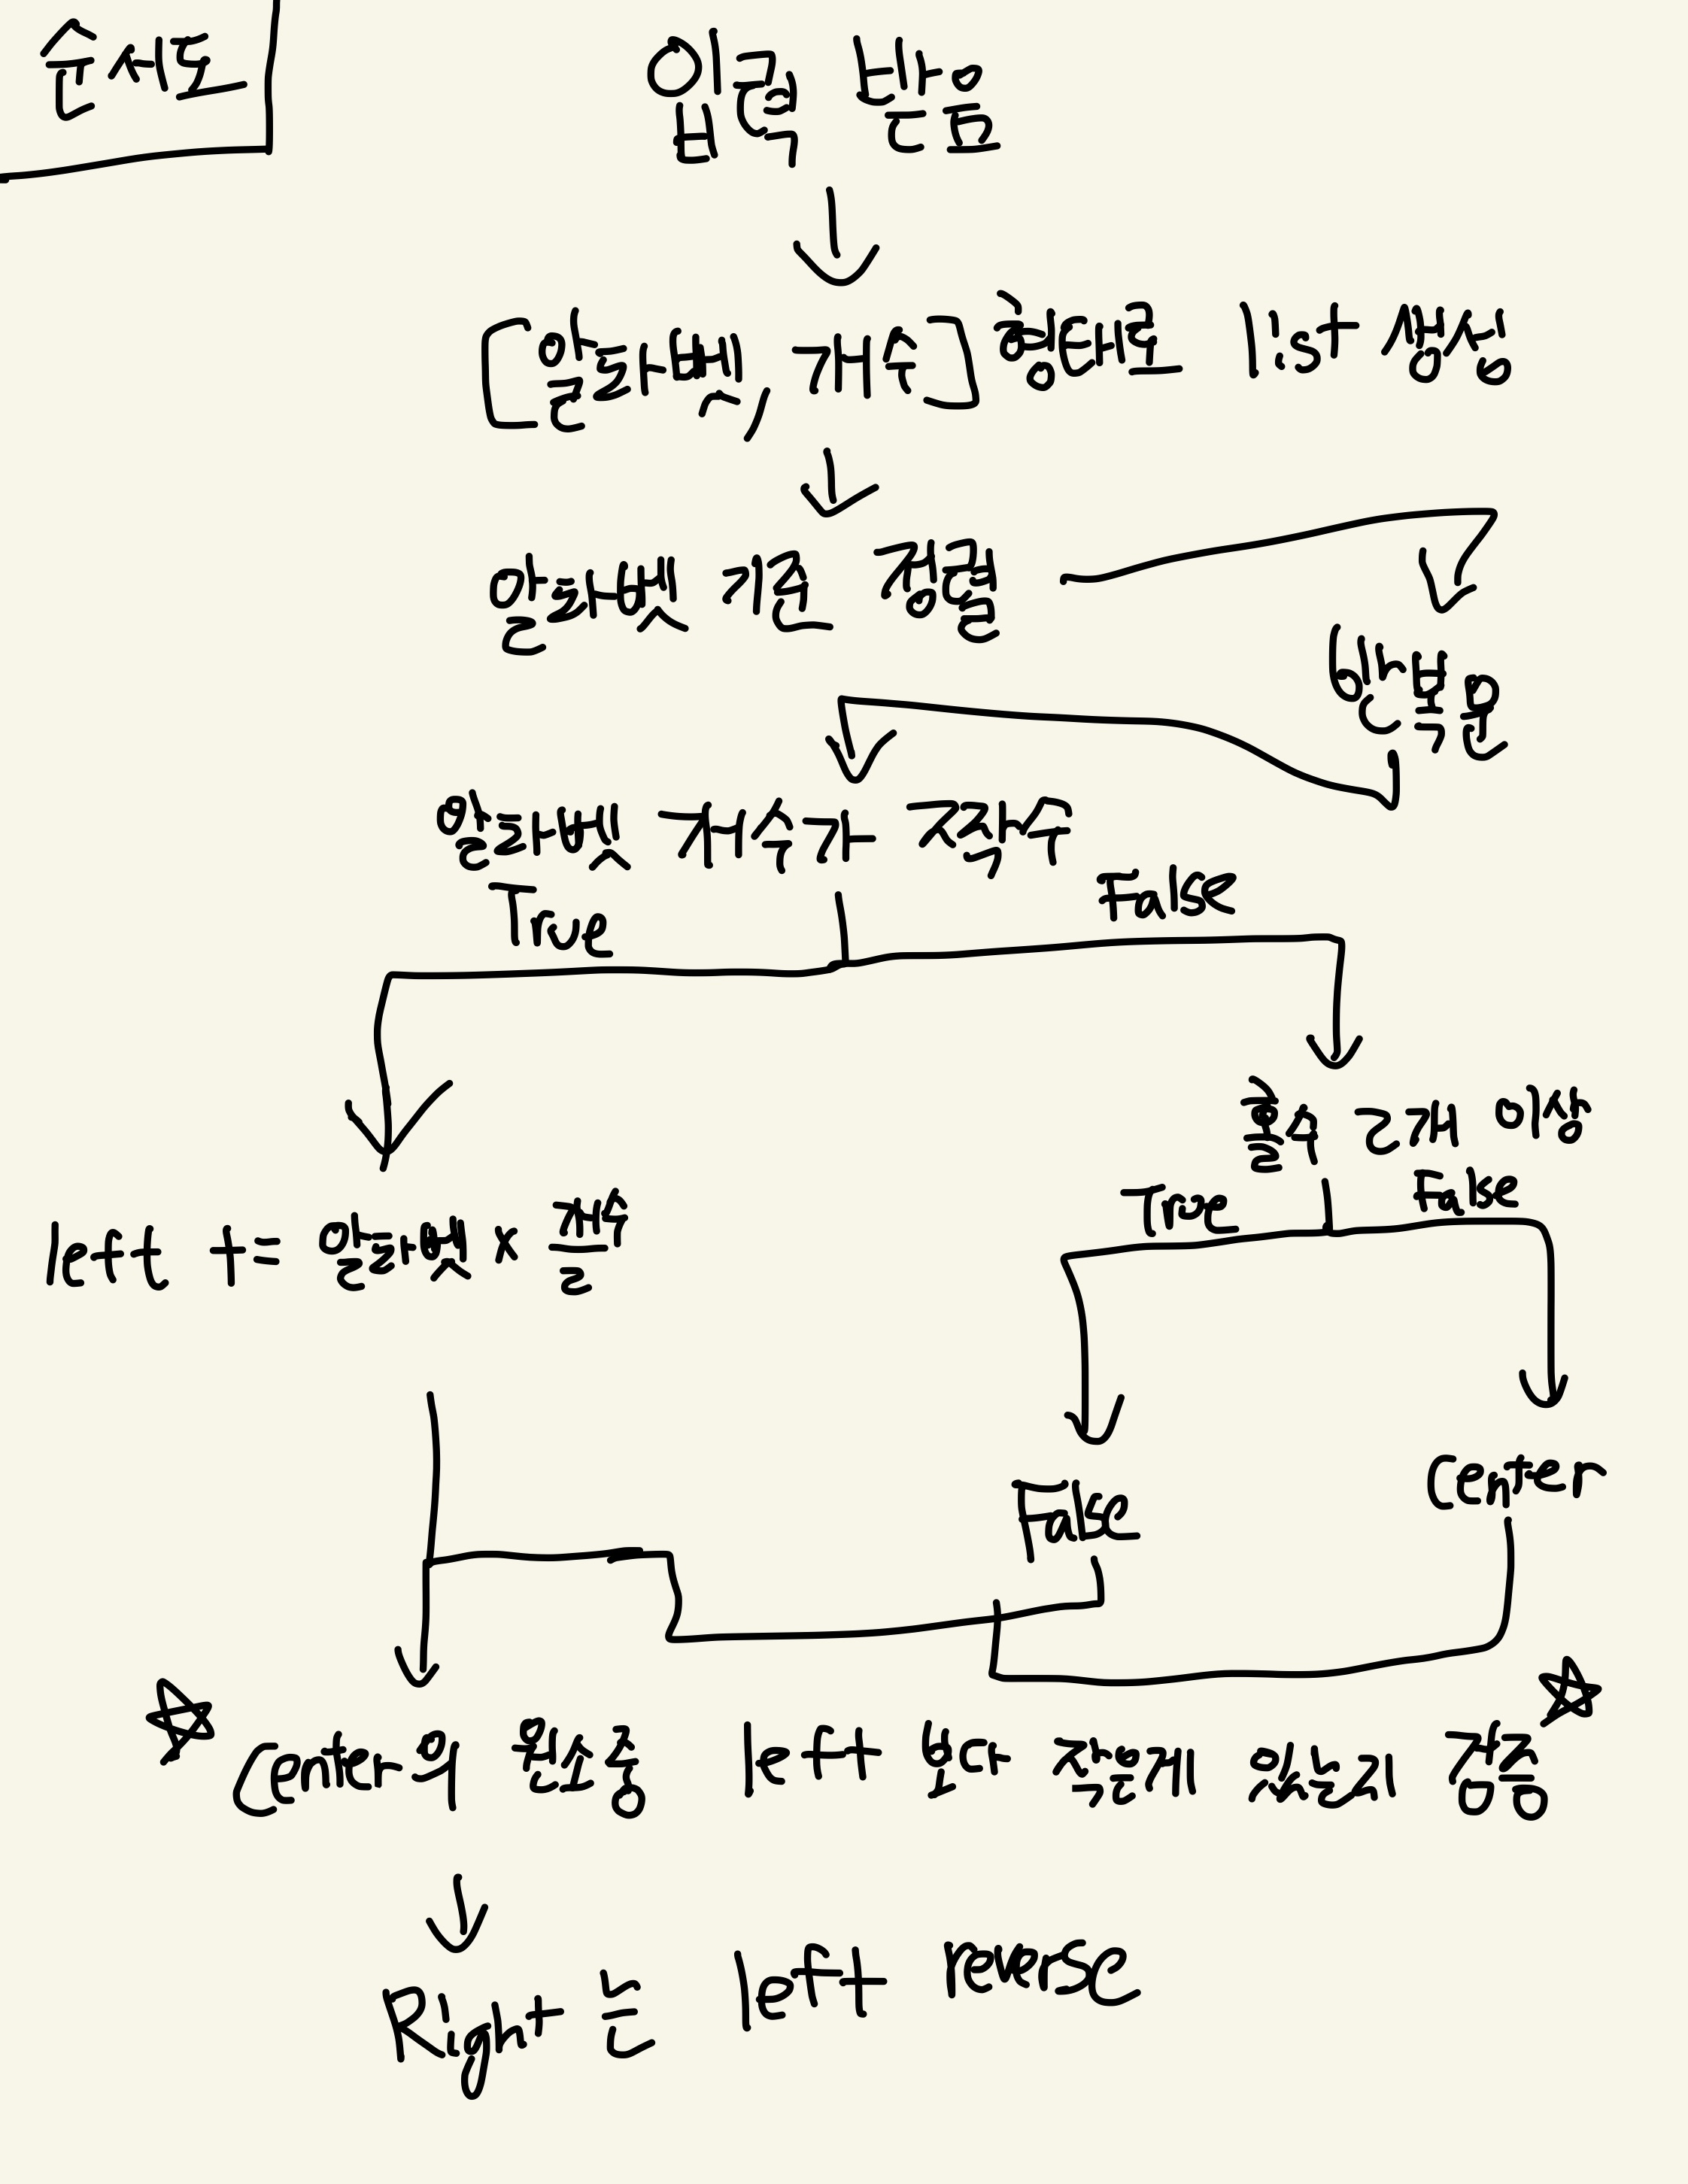 순서도
입력 받음
[알파벳, 개수] 형태로 list 생성
알파벳 기준 정렬
반복문
알파벳 개수가 짝수
True
False
홀수 2개 이상
True
False
left += 알파벳 x 개수/2
False
Center
Center의 원소중 left 보다 작은게 있는지 검증
Right 는 left reverse